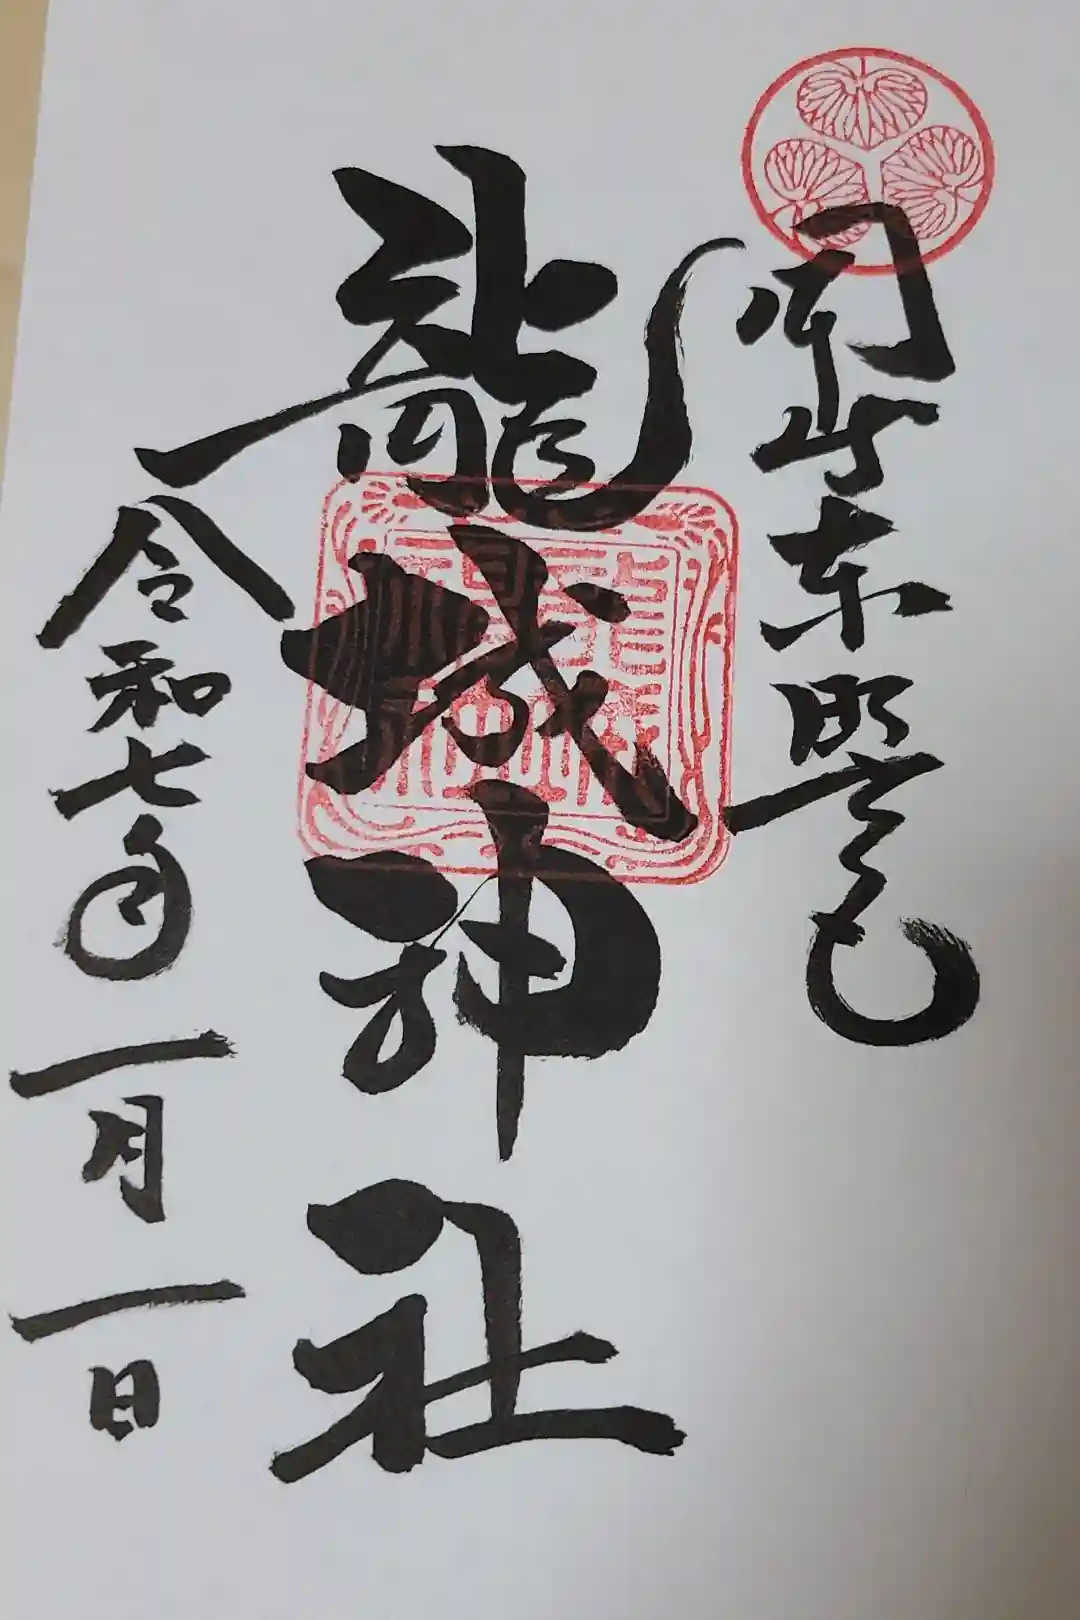 岡崎東照宮
龍城神社
令和七年一月一日